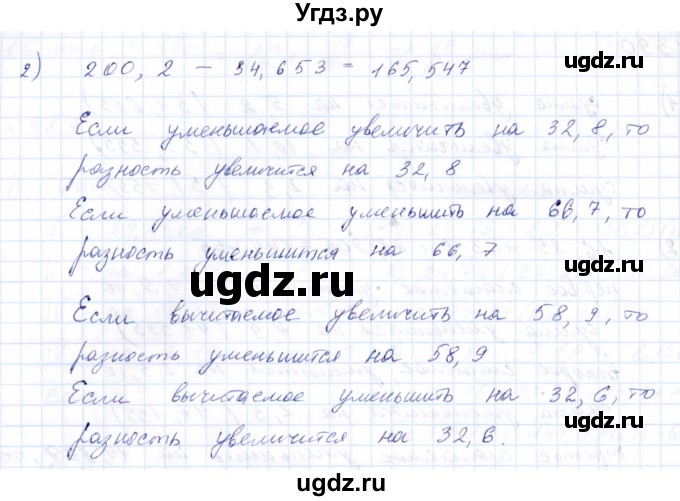 Угдз.ру
2) 200,2 - 34,653 = 165,547
Если уменьшаемое увеличить на 32,8, то
разность увеличится на 32,8
Если уменьшаемое уменьшить на 66,7, то
разность уменьшится на 66,7
ugdz.ru
Если вычитаемое увеличить на 58,9, то
разность уменьшится на 58,9
Если вычитаемое уменьшить на 32,6, то
разность увеличится на 32,6.